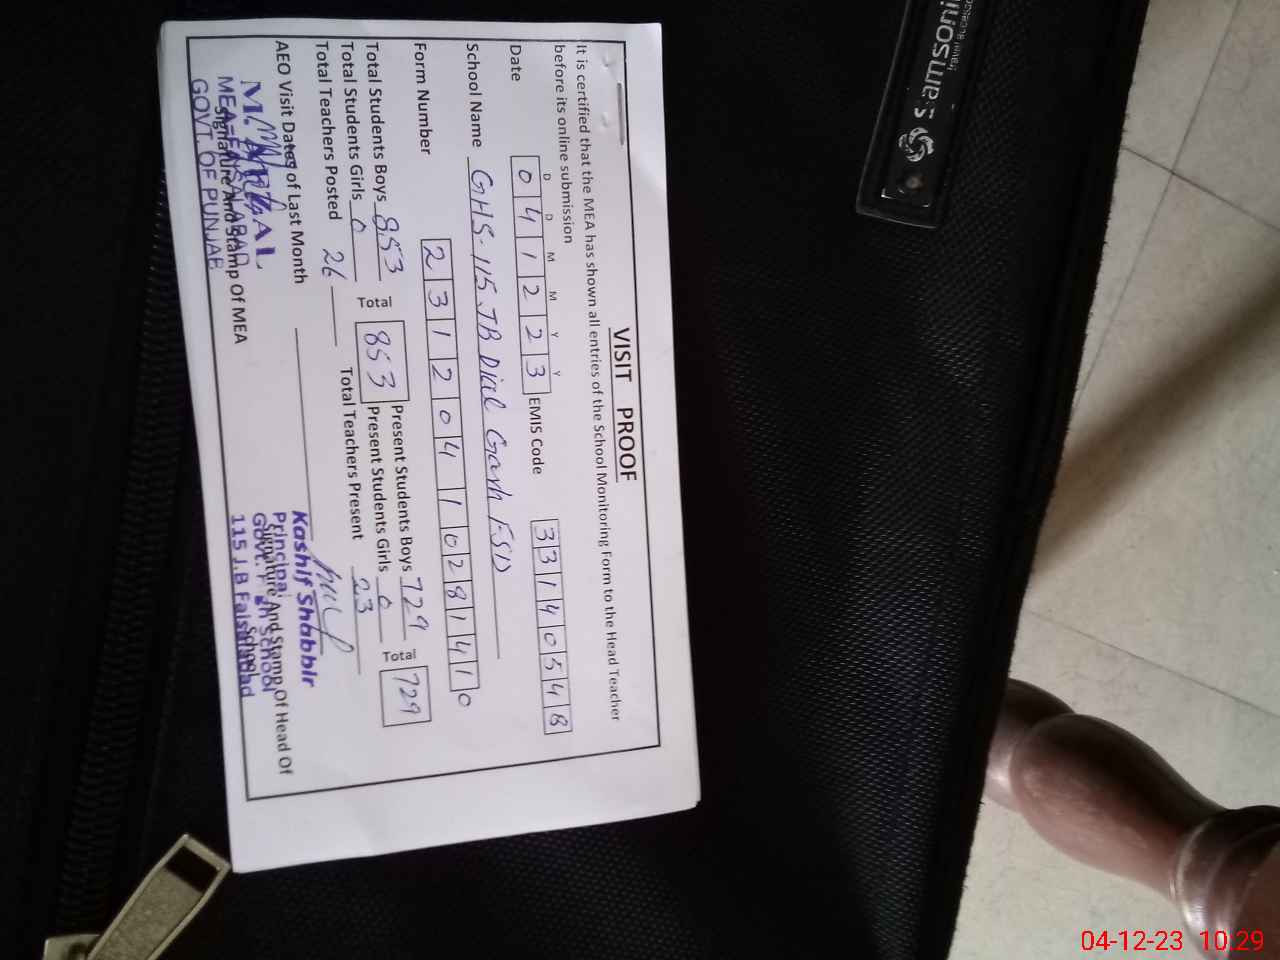 VISIT PROOF
It is certified that the MEA has shown all entries of the School Monitoring Form to the Head Teacher
before its online submission
D D M M Y Y
Date 041223 EMIS Code 33140548
School Name GHS. 115 JB Dial Garh FSD
Form Number 23120410281410
Total Students Boys 853 Total 853 Present Students Boys 729 Total 729
Total Students Girls 0 Present Students Girls 0
Total Teachers Posted 26 Total Teachers Present 23
AEO Visit Dates of Last Month
Signature And Stamp Of MEA
M. AFZAL
MEA-FAISALABAD
GOVT. OF PUNJAB
Signature And Stamp Of Head Of School
Kashif Shabbir
Principal
Govt. High School
115 J.B Faisalabad
Samsonite
04-12-23 10.29